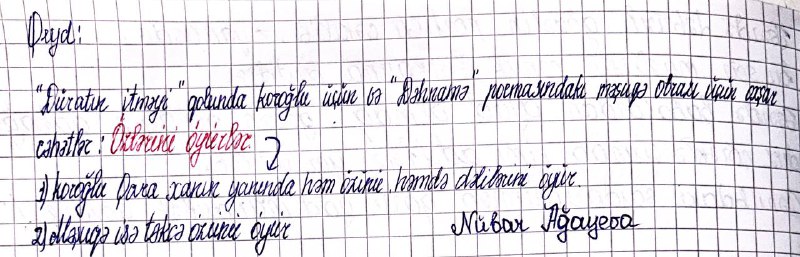 Qeyd:
"Düratın itməyi" qolunda koroğlu üçün və "Dəhnamə" poemasındakı məşuqə obrazı üçün oxşar
cəhətlər: Özlərini öyürlər.
1) koroğlu Qara xanın yanında həm özünü, həmdə dəlilərini öyür.
2) Məşuqə isə təkcə özünü öyür
Nübar Ağayeva